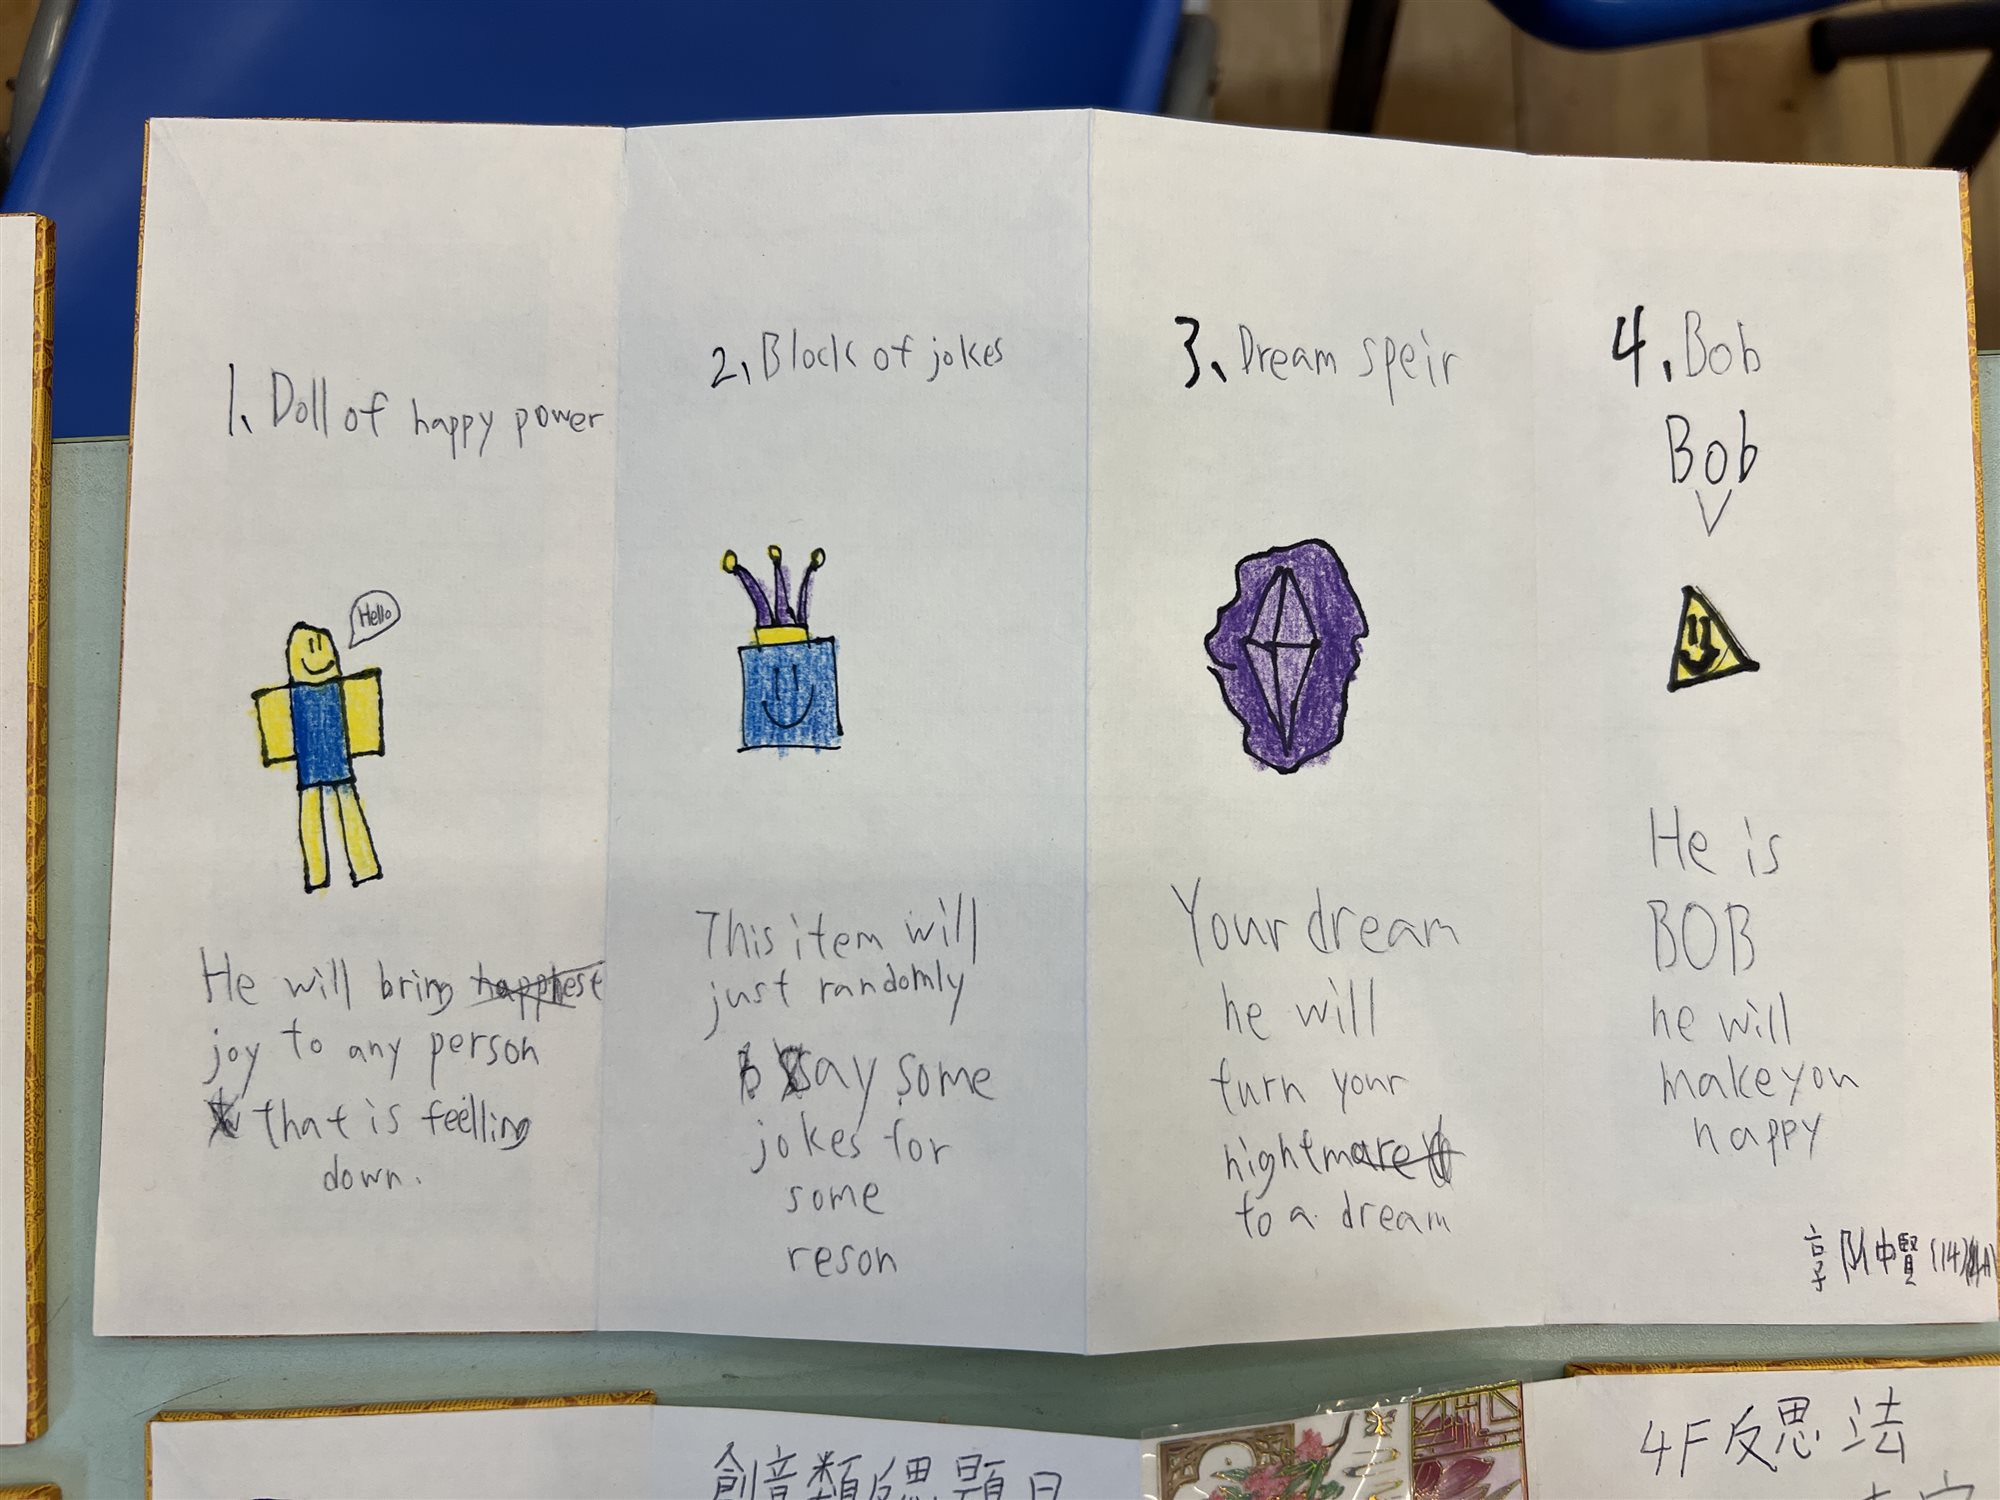 1. Doll of happy power
Hello
He will bring
joy to any person
that is feelling
down.
2. Block of jokes
This item will
just randomly
say some
jokes for
some
reson
3. Dream speir
Your dream
he will
turn your
nightmare
to a dream
4. Bob
Bob
He is
BOB
he will
make you
happy
中賢 (14)
4F反思法
創意類反思題目